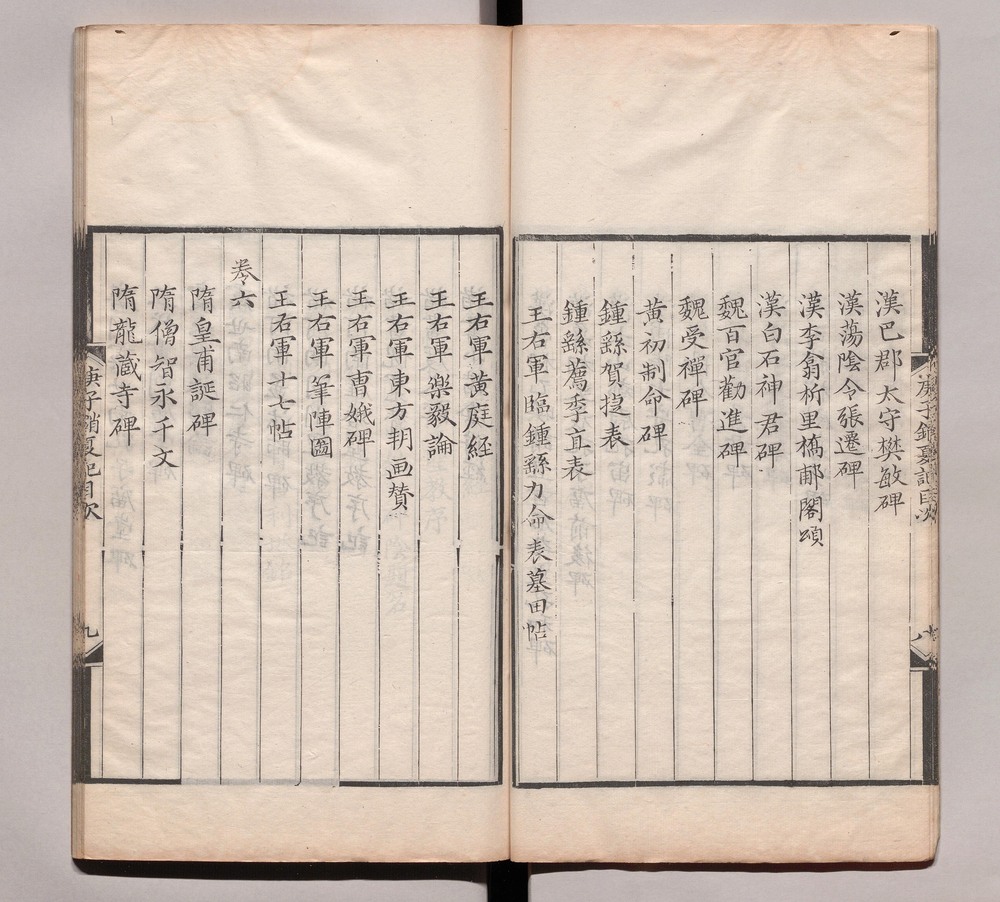 漢巴郡太守樊敏碑
漢蕩陰令張遷碑
漢李翕析里橋郙閣頌
漢白石神君碑
魏百官勸進碑
魏受禪碑
黃初制命碑
鍾繇賀捷表
鍾繇薦季直表
王右軍臨鍾繇力命表墓田帖
王右軍黃庭経
王右軍樂毅論
王右軍東方朔画贊
王右軍曹娥碑
王右軍筆陣圖
王右軍十七帖
卷六
隋皇甫誕碑
隋僧智永千文
隋龍藏寺碑
庚子銷夏記目次
九